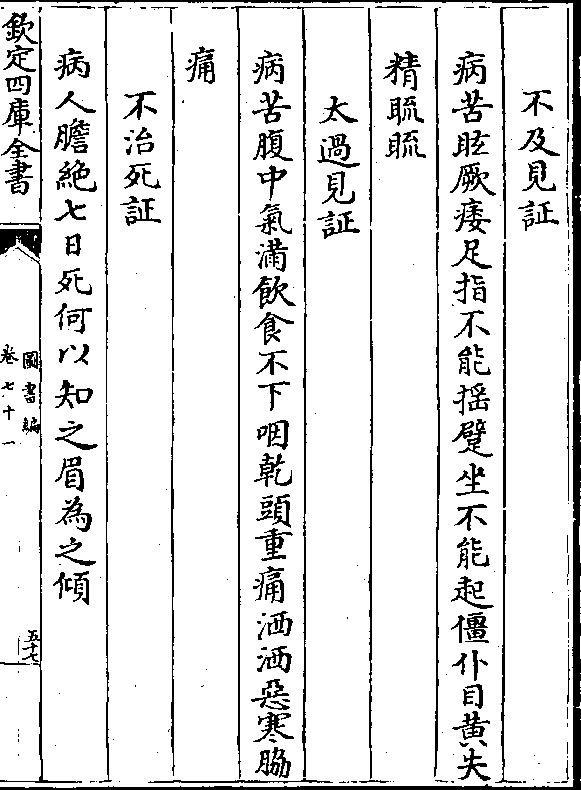 不及見証
病苦眩厥痿足指不能揺躄坐不能起僵仆目黄失
精䀮䀮
太過見証
病苦腹中氣滿飲食不下咽乾頭重痛洒洒惡寒脇
痛
不治死証
病人膽絶七日死何以知之眉為之傾
欽定四庫全書
圖書編
卷七十一
五十七